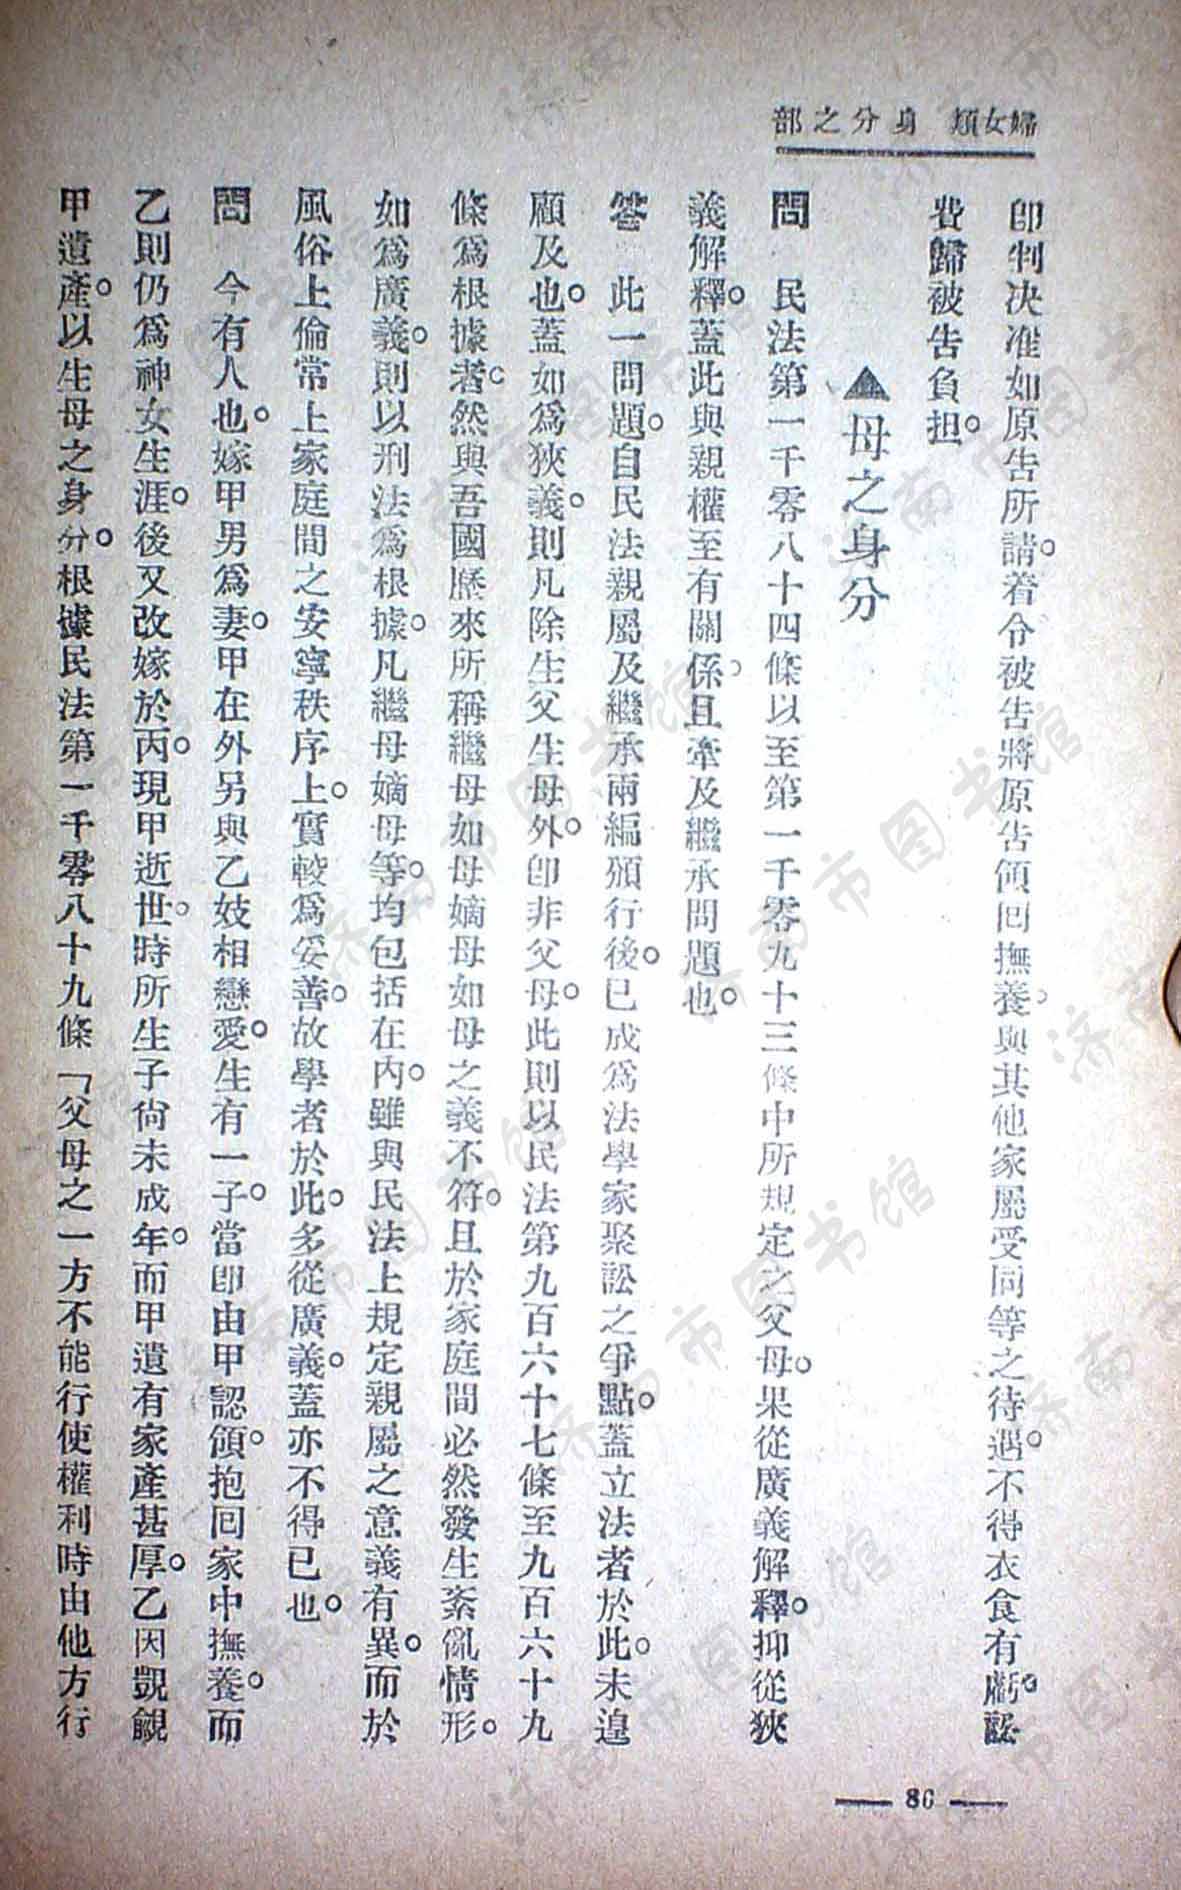 婦女類　身分之部
卽判决准如原告所請。着令被告將原告領回撫養。與其他家屬受同等之待遇。不得衣食有虧。訟
費歸被告負担。
▲母之身分
問　民法第一千零八十四條以至第一千零九十三條中所規定之父母。果從廣義解釋。抑從狹
義解釋。蓋此與親權至有關係。且牽及繼承問題也。
答　此一問題。自民法親屬及繼承兩編頒行後。已成爲法學家聚訟之爭點。蓋立法者於此。未遑
顧及也。蓋如爲狹義。則凡除生父生母外。卽非父母。此則以民法第九百六十七條至九百六十九
條爲根據者。然與吾國歷來所稱繼母如母嫡母如母之義不符。且於家庭間必然發生紊亂情形。
如爲廣義。則以刑法爲根據。凡繼母嫡母等。均包括在內。雖與民法上規定親屬之意義有異。而於
風俗上倫常上家庭間之安寧秩序上。實較爲妥善。故學者於此。多從廣義。蓋亦不得已也。
問　今有人也。嫁甲男爲妻。甲在外另與乙妓相戀愛。生有一子。當卽由甲認領。抱回家中撫養。而
乙則仍爲神女生涯。後又改嫁於丙。現甲逝世。時所生子尙未成年。而甲遺有家產甚厚。乙因覬覦
甲遺產。以生母之身分。根據民法第一千零八十九條「父母之一方不能行使權利時由他方行
86
济南市图书馆